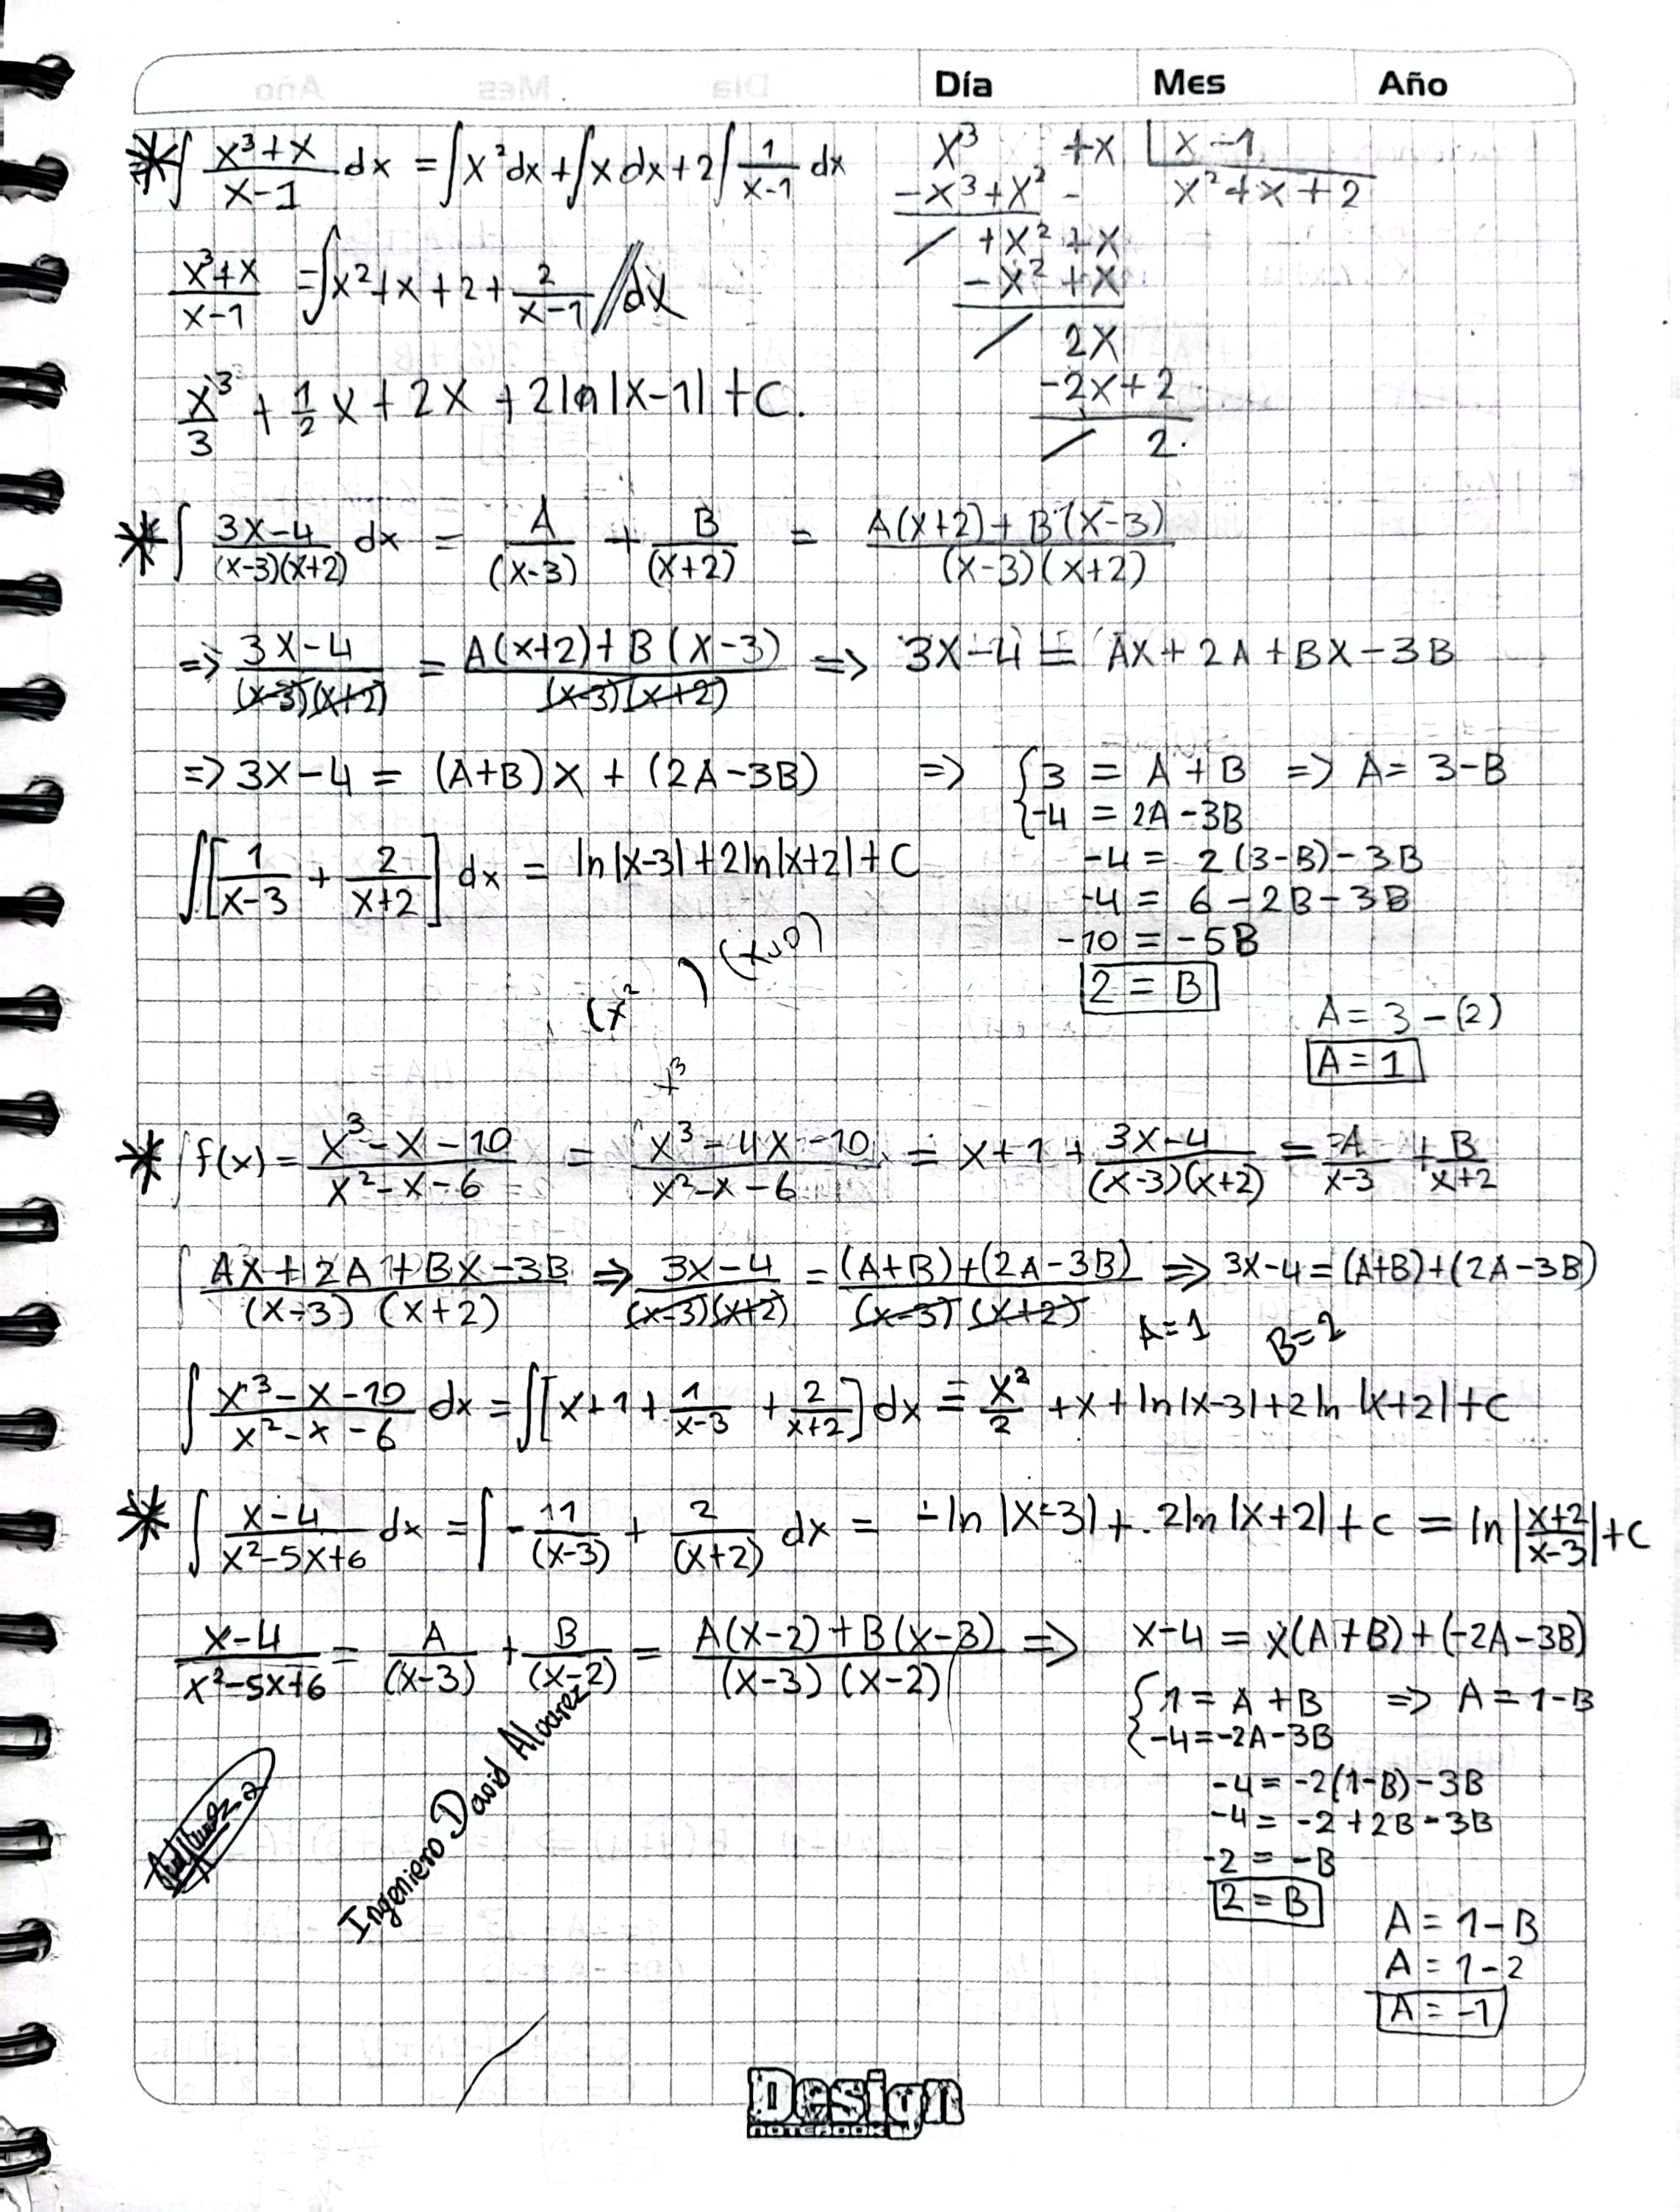 Día Mes Año
* ∫ (x³+x)/(x-1) dx = ∫x²dx + ∫x dx + 2∫ 1/(x-1) dx
x³ +x | x-1
-x³+x² - x²+x+2
+x² +x
-x² +x
2x
-2x+2
2.
(x³+x)/(x-1) = ∫x²+x+2+ 2/(x-1) // dx
x³/3 + 1/2 x + 2x + 2ln|x-1| + C.
* ∫ (3x-4)/((x-3)(x+2)) dx = A/(x-3) + B/(x+2) = (A(x+2)+B(x-3))/((x-3)(x+2))
=> (3x-4)/((x-3)(x+2)) = (A(x+2)+B(x-3))/((x-3)(x+2)) => 3x-4 = Ax+2A+Bx-3B
=> 3x-4 = (A+B)x + (2A-3B) => { 3 = A+B => A = 3-B
-4 = 2A-3B
∫[1/(x-3) + 2/(x+2)] dx = ln|x-3|+2ln|x+2|+C
-4 = 2(3-B)-3B
-4 = 6-2B-3B
-10 = -5B
2 = B
A = 3-(2)
A = 1
(x² )
x³
* ∫f(x) = (x³-x-10)/(x²-x-6) = (x³-4x-10)/(x²-x-6) = x+1+ (3x-4)/((x-3)(x+2)) = A/(x-3) + B/(x+2)
∫ (Ax+2A+Bx-3B)/((x-3)(x+2)) => (3x-4)/((x-3)(x+2)) = ((A+B)+(2A-3B))/((x-3)(x+2)) => 3x-4=(A+B)+(2A-3B)
A=1 B=2
∫ (x³-x-10)/(x²-x-6) dx = ∫[x+1+ 1/(x-3) + 2/(x+2)] dx = x²/2 +x+ln|x-3|+2ln|x+2|+C
* ∫ (x-4)/(x²-5x+6) dx = ∫ - 11/(x-3) + 2/(x+2) dx = -ln|x-3|+2ln|x+2|+c = ln|(x+2)/(x-3)|+C
(x-4)/(x²-5x+6) = A/(x-3) + B/(x-2) = (A(x-2)+B(x-3))/((x-3)(x-2)) => x-4 = x(A+B)+(-2A-3B)
{ 1 = A+B => A = 1-B
-4=-2A-3B
-4 = -2(1-B)-3B
-4 = -2+2B-3B
-2 = -B
2 = B
A = 1-B
A = 1-2
A = -1
Ingeniero David Alvarez
Design
NOTEBOOK